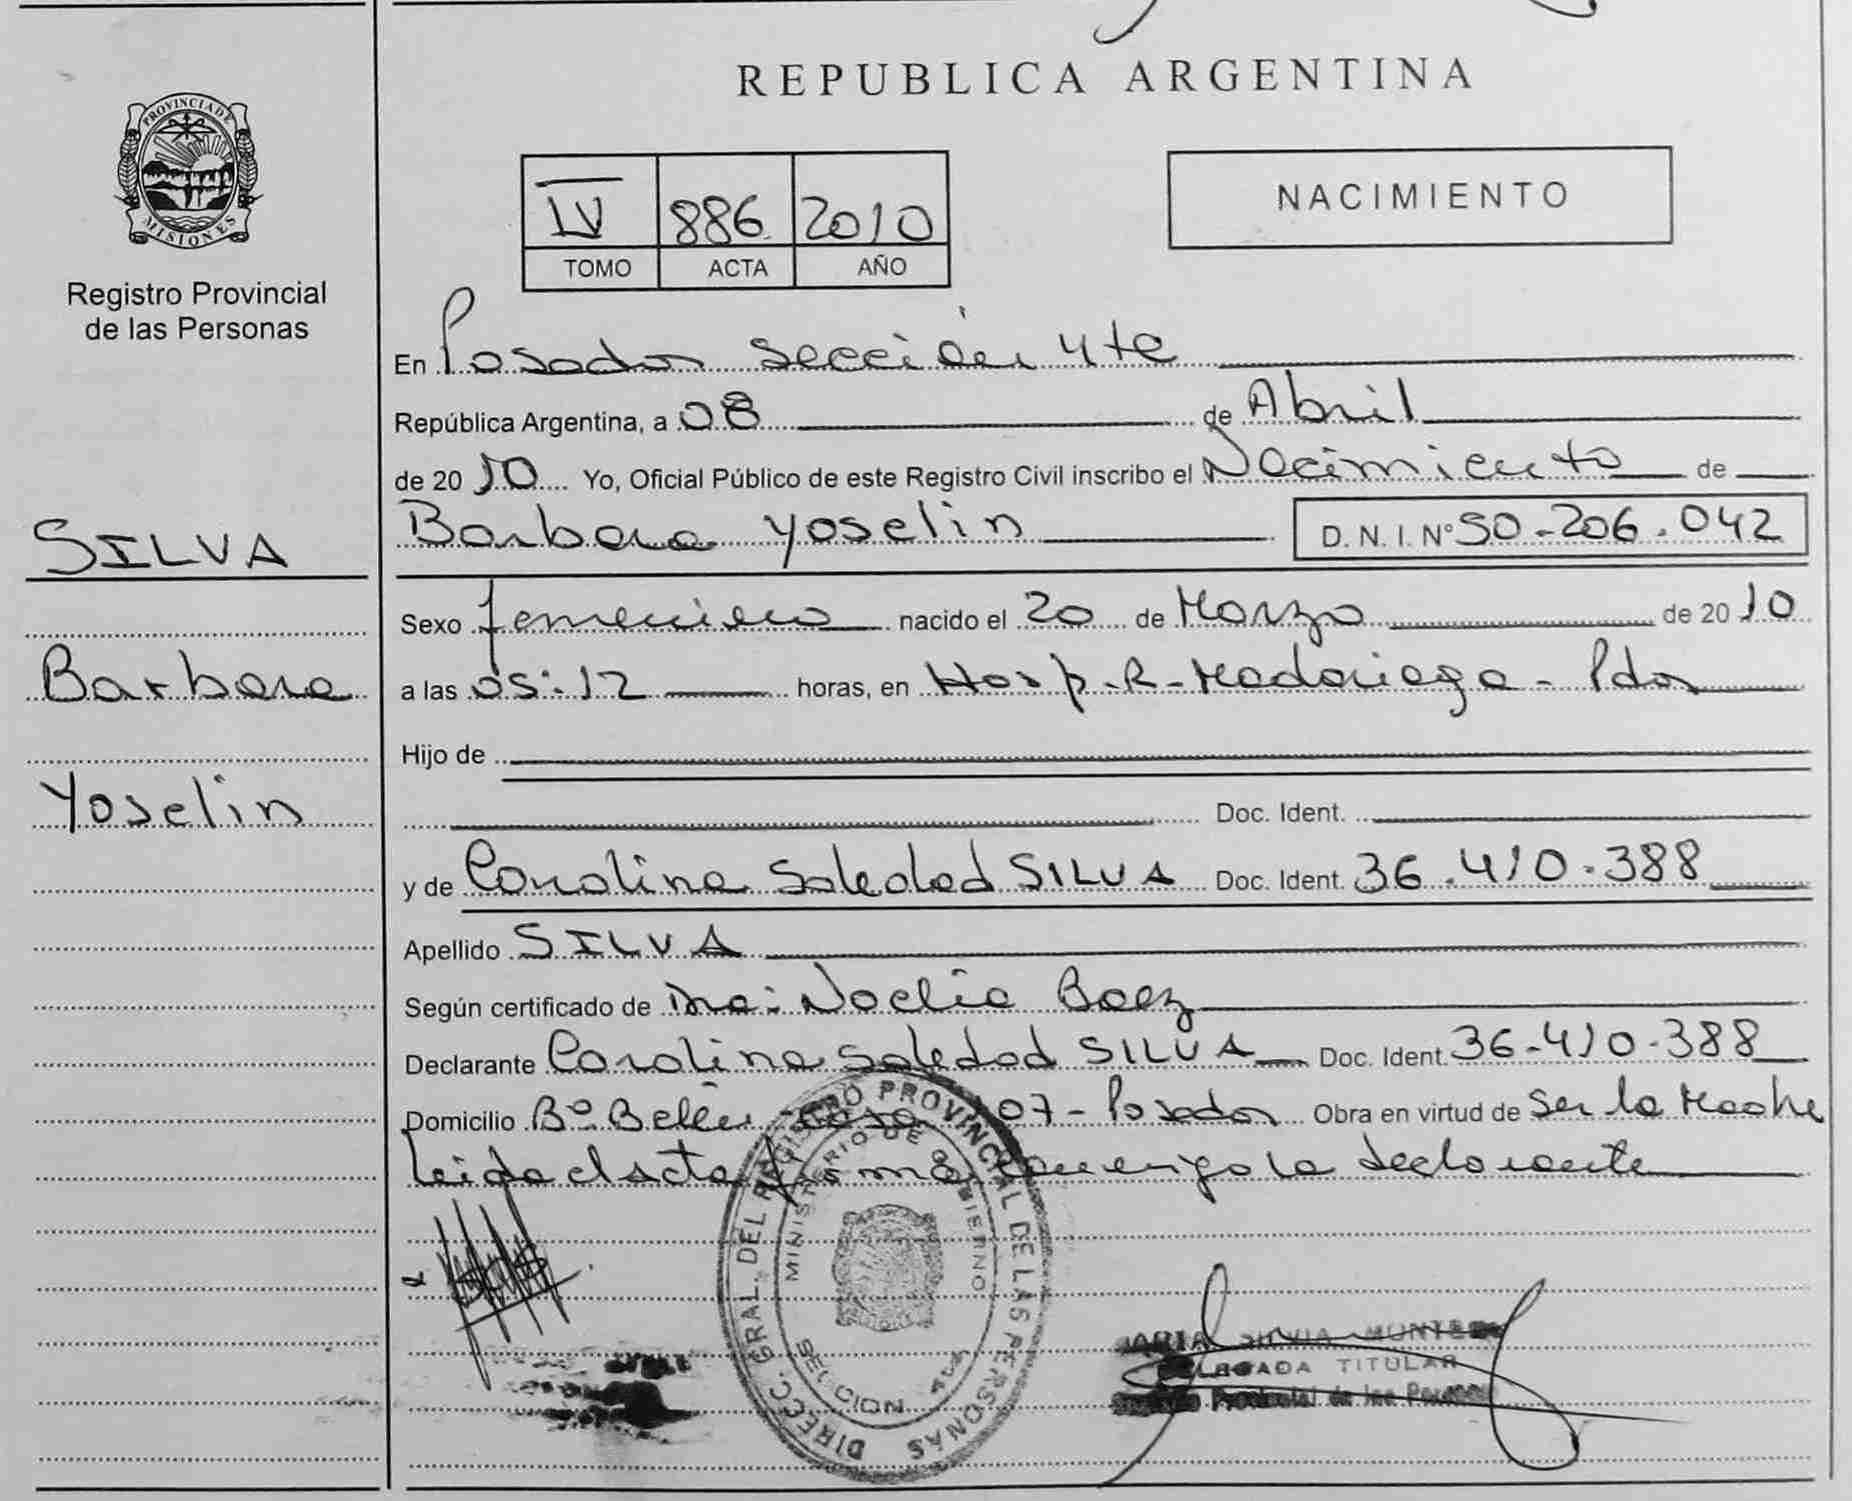 PROVINCIA DE
MISIONES
Registro Provincial
de las Personas
SILVA
Barbara
Yoselin
REPUBLICA ARGENTINA
IV 886 2010
TOMO ACTA AÑO
NACIMIENTO
En Posadas Sección 4ta
República Argentina, a 08 de Abril
de 2010 Yo, Oficial Público de este Registro Civil inscribo el Nacimiento de
Barbara Yoselin D. N. I. Nº 50-206.042
Sexo femenino nacido el 20 de Marzo de 2010
a las 05:12 horas, en Hosp. R. Madariaga - Pdas
Hijo de
Doc. Ident.
y de Carolina Soledad SILVA Doc. Ident. 36.410.388
Apellido SILVA
Según certificado de Dra: Noelia Baez
Declarante Carolina Soledad SILVA Doc. Ident. 36-410-388
Domicilio Bº Belén Casa 107 - Posadas Obra en virtud de Ser la Madre
Leida el acta firma conmigo la declarante
DIRECC. GRAL. DEL REGISTRO PROVINCIAL DE LAS PERSONAS
MINISTERIO DE GOBIERNO
SECCION 4ta
SILVIA
DELEGADA TITULAR
Provincial de las Personas